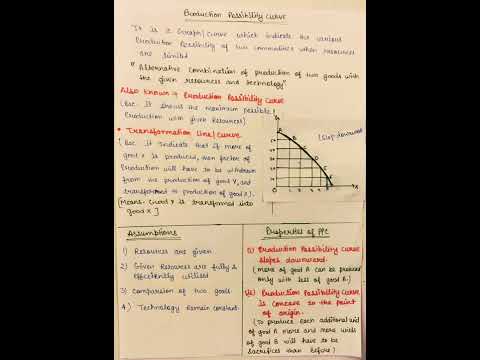 Production Possibility Curve
It is a Graph/curve which indicate the various
Production Possibility of two commodities when resources
are limited
"Alternative Combination of production of two goods with
the given resources and technology"
Also known of Production Possibility Curve
(Bec. It shows the maximum possible
Production with given Resources)
Transformation line/curve
(Bec. It indicate that if more of
good X is produced, then factor of
Production will have to be withdrawn
from the production of good Y, and
transformed to production of good X).
[Means. Good Y is transformed into
good X]
(Slop downward)
A
B
C
D
E
F
Assumptions
1) Resources are given
2) Given Resources are fully &
efficiently utilised
3) Comparison of two goods
4) Technology Remain constant.
Properties of PPC
(i) Production Possibility Curve
Slopes downward.
(more of good A can be produced
only with less of good B.)
(ii) Production Possibility Curve
is Concave to the point
of origin.
(To produce each additional unit
of good A more and more units
of good B will have to be
Sacrifices than before)